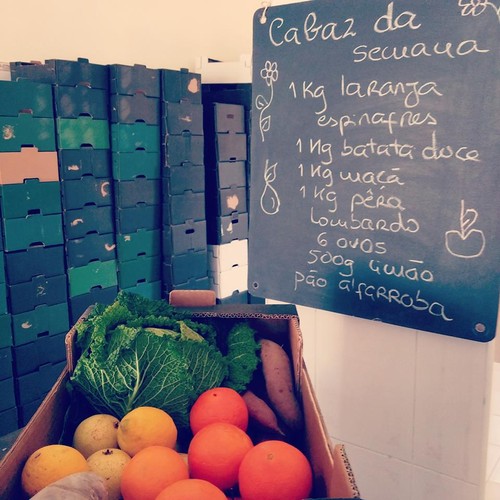 Cabaz da
semana
1 Kg laranja
espinafres
1 Kg batata doce
1 Kg maçã
1 Kg pêra
Lombardo
6 ovos
500g limão
pão alfarroba